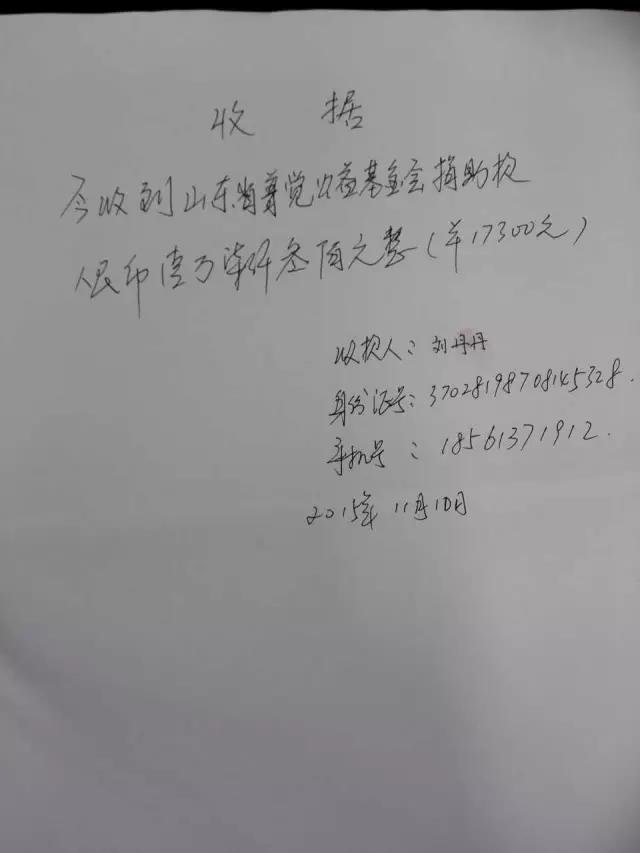 收 据
今收到山东省尊觉公益基金会捐助款
人民币壹万柒仟叁佰元整(羊17300元)
收款人:刘丹丹
身份证号:37028198708145328.
手机号:18561371912.
2015年11月10日